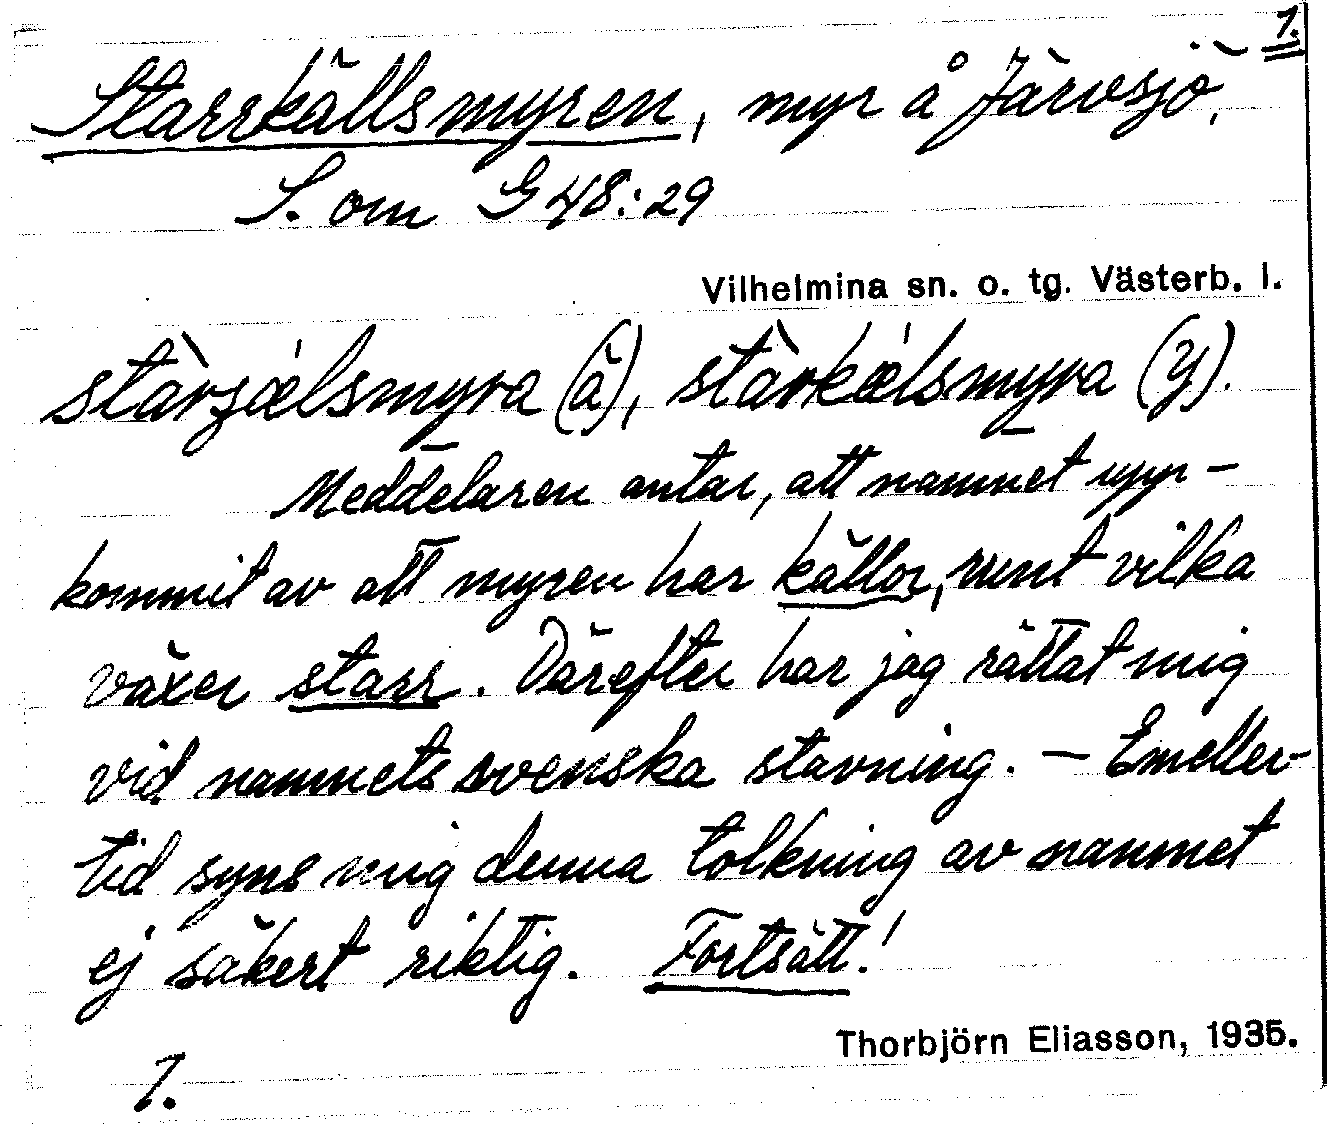 1.
Starrkällsmyren, myr å Järvsjö,
S. om G 48:29
Vilhelmina sn. o. tg. Västerb. l.
stàrʒǽlsmyra (ä), stàrkǽlsmyra (y).
Meddelaren antar, att namnet upp-
kommit av att myren har källor, runt vilka
växer starr. Därefter har jag rättat mig
vid namnets svenska stavning. – Emeller-
tid syns mig denna tolkning av namnet
ej säkert riktig. Fortsätt!
Thorbjörn Eliasson, 1935.
1.